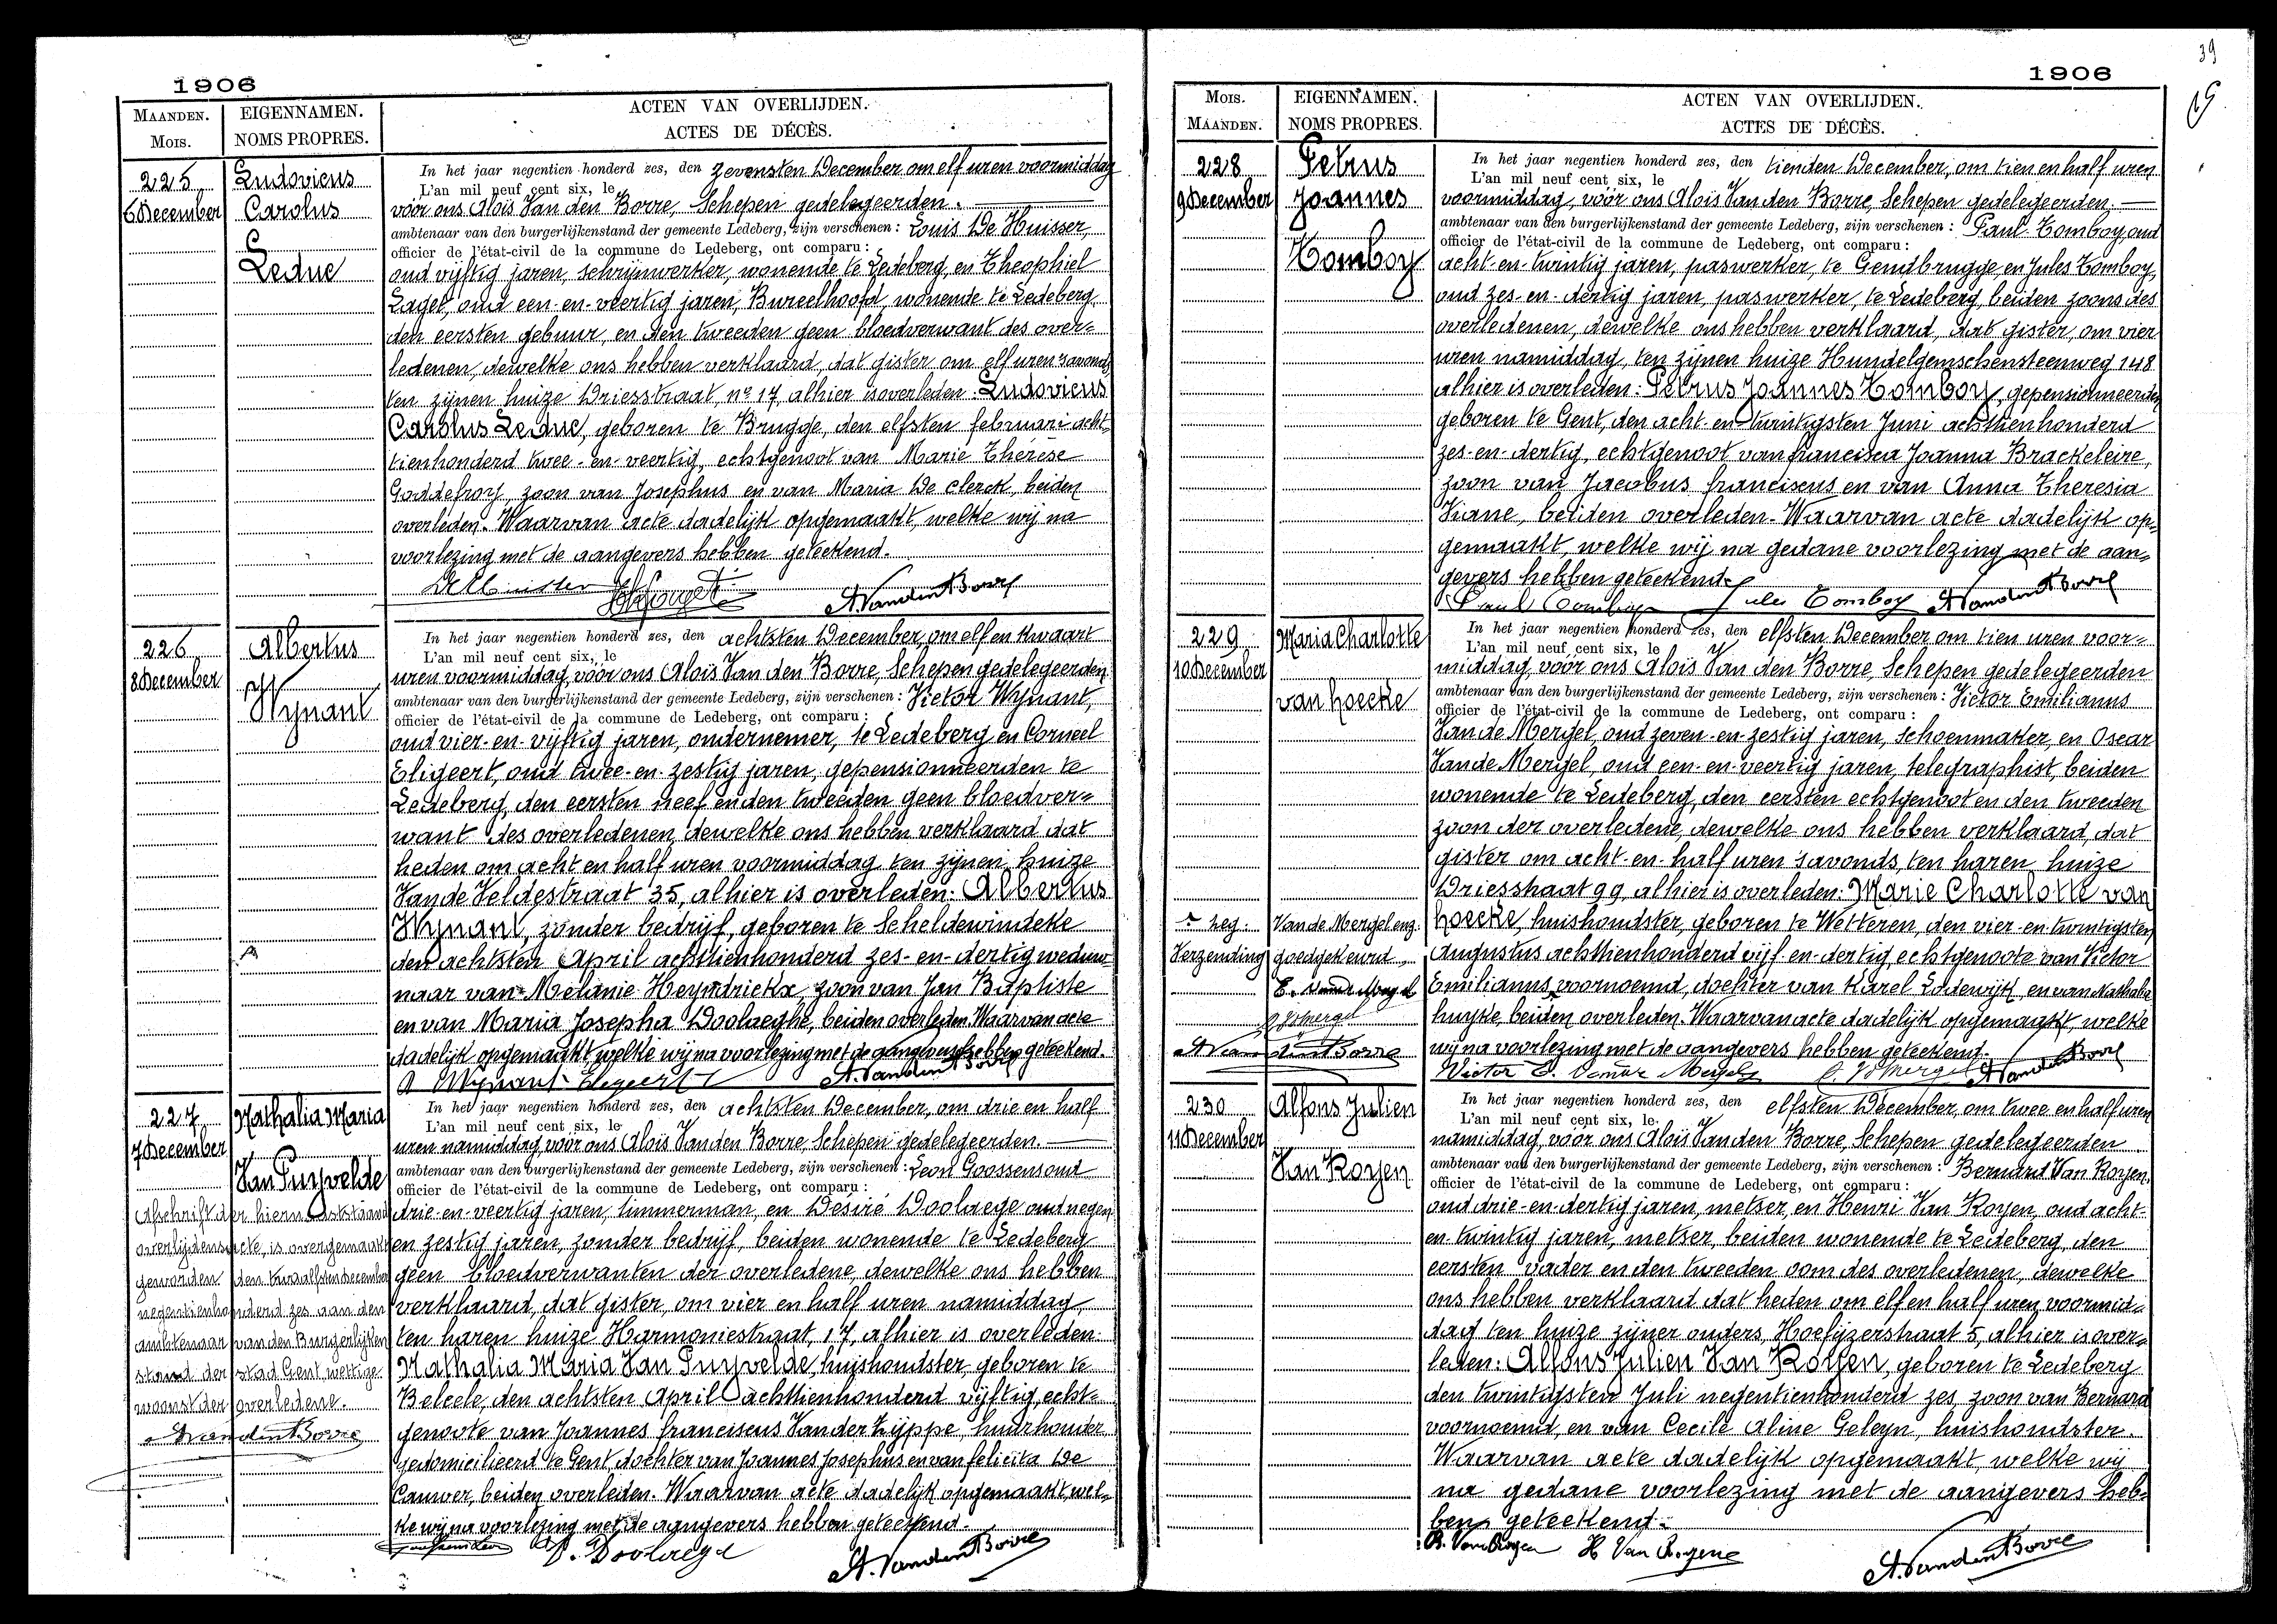 1906
MAANDEN.
MOIS.
EIGENNAMEN.
NOMS PROPRES.
ACTEN VAN OVERLIJDEN.
ACTES DE DÉCÈS.
225
6 December
Ludovicus
Carolus
Leduc
In het jaar negentien honderd zes, den zevensten December om elf uren voormiddag
L'an mil neuf cent six, le
vóór ons Aloïs Van den Borre, Schepen gedelegeerden.
ambtenaar van den burgerlijkenstand der gemeente Ledeberg, zijn verschenen : Louis De Huisser,
officier de l'état-civil de la commune de Ledeberg, ont comparu :
oud vijftig jaren, schrijnwerker, wonende te Ledeberg, en Theophiel
oud een-en-veertig jaren, Bureelhoofd, wonende te Ledeberg,
den eersten gebuur, en den tweeden geen bloedverwant des over=
ledenen, dewelke ons hebben verklaard, dat gister om elf uren 'savonds
ten zijnen huize Driesstraat, nr 17, alhier is overleden: Ludovicus
Carolus Leduc, geboren te Brugge, den elfsten februari acht-
tienhonderd twee-en-veertig, echtgenoot van Marie Thérèse
Goddefroy, zoon van Josephus en van Maria De Clerck, beiden
overleden. Waarvan acte dadelijk opgemaakt, welke wij na
voorlezing met de aangevers hebben geteekend.
A. Van den Borre
226
8 December
Albertus
Wynant
In het jaar negentien honderd zes, den achtsten December, om elf en kwaart
L'an mil neuf cent six, le
uren voormiddag, vóór ons Aloïs Van den Borre, Schepen gedelegeerden
ambtenaar van den burgerlijkenstand der gemeente Ledeberg, zijn verschenen : Victor Wynant,
officier de l'état-civil de la commune de Ledeberg, ont comparu :
oud vier-en-vijftig jaren, ondernemer, te Ledeberg en Corneel
Eligeert, oud twee-en-zestig jaren, gepensionneerden te
Ledeberg, den eersten neef en den tweeden geen bloedver=
want des overledenen, dewelke ons hebben verklaard dat
heden om acht en half uren voormiddag ten zijnen huize
Van de Veldestraat 35, alhier is overleden: Albertus
Wynant, zonder bedrijf, geboren te Scheldewindeke
den achtsten April achttienhonderd zes-en-dertig weduw-
naar van Melanie Heyndrickx, zoon van Jan Baptiste
en van Maria Josepha Doolaeghe, beiden overleden. Waarvan acte
dadelijk opgemaakt, welke wij na voorlezing met de aangevers hebben geteekend.
Wynant Eligeert A. Van den Borre
227
7 December
Nathalia Maria
Van Puyvelde
Afschrift der hiernaststaande
overlijdensacte, is overgemaakt
geworden den twaalfsten december
negentienhonderd zes aan den
ambtenaar van den Burgerlijken
stand der stad Gent wettige
woonst der overledene.
A. Van den Borre
In het jaar negentien honderd zes, den achtsten December, om drie en half
L'an mil neuf cent six, le
uren namiddag, vóór ons Aloïs Van den Borre, Schepen gedelegeerden.
ambtenaar van den burgerlijkenstand der gemeente Ledeberg, zijn verschenen : Leon Goossens oud
officier de l'état-civil de la commune de Ledeberg, ont comparu :
drie-en-veertig jaren, timmerman, en Désiré Doolaege oud negen
en zestig jaren, zonder bedrijf, beiden wonende te Ledeberg
geen bloedverwanten der overledene, dewelke ons hebben
verklaard, dat gister, om vier en half uren namiddag,
ten haren huize Harmoniestraat, 17, alhier is overleden:
Nathalia Maria Van Puyvelde, huishoudster, geboren te
Belcele, den achtsten April achttienhonderd vijftig, echt=
genoote van Joannes Franciscus Van der Zijppe, huurhouder
gedomicilieerd te Gent, dochter van Joannes Josephus en van felicita De
Cauwer, beiden overleden. Waarvan acte dadelijk opgemaakt, wel=
ke wij na voorlezing met de aangevers hebben geteekend.
D. Doolaege A. Van den Borre
39
1906
MOIS.
MAANDEN.
EIGENNAMEN.
NOMS PROPRES.
ACTEN VAN OVERLIJDEN.
ACTES DE DÉCÈS.
228
9 December
Petrus
Joannes
Tomboy
In het jaar negentien honderd zes, den tienden December, om tien en half uren
L'an mil neuf cent six, le
voormiddag, vóór ons Aloïs Van den Borre, Schepen gedelegeerden.
ambtenaar van den burgerlijkenstand der gemeente Ledeberg, zijn verschenen : Paul Tomboy, oud
officier de l'état-civil de la commune de Ledeberg, ont comparu :
acht-en-twintig jaren, paswerker, te Gendbrugge, en Jules Tomboy,
oud zes-en-dertig jaren, paswerker, te Ledeberg, beiden zoons des
overledenen, dewelke ons hebben verklaard, dat gister, om vier
uren namiddag, ten zijnen huize Hundelgemschensteenweg 148
alhier is overleden: Petrus Joannes Tomboy, gepensionneerden
geboren te Gent, den acht-en-twintigsten Juni achttienhonderd
zes-en-dertig, echtgenoot van francisca Joanna Brackeleire,
zoon van Jacobus franciscus en van Anna Theresia
beiden overleden. Waarvan acte dadelijk op=
gemaakt, welke wij na gedane voorlezing met de aan=
gevers hebben geteekend.
Paul Tomboy Jules Tomboy A. Van den Borre
229
10 December
Maria Charlotte
van hoecke
Verzending
Van de Mergel enz.
goedgekeurd
A. Van den Borre
In het jaar negentien honderd zes, den elfsten December om tien uren voor=
L'an mil neuf cent six, le
middag, vóór ons Aloïs Van den Borre, Schepen gedelegeerden
ambtenaar van den burgerlijkenstand der gemeente Ledeberg, zijn verschenen : Victor Emilianus
officier de l'état-civil de la commune de Ledeberg, ont comparu :
Van de Mergel, oud zeven-en-zestig jaren, schoenmaker, en Oscar
Van de Mergel, oud een-en-veertig jaren, telegraphist, beiden
wonende te Ledeberg, den eersten echtgenoot en den tweeden
zoon der overledene, dewelke ons hebben verklaard, dat
gister om acht-en-half uren 'savonds, ten haren huize
Driesstraat 99, alhier is overleden: Marie Charlotte van
hoecke, huishoudster, geboren te Wetteren, den vier-en-twintigsten
Augustus achttienhonderd vijf-en-dertig, echtgenoote van Victor
Emilianus, voornoemd, dochter van Karel Lodewijk, en van Nathalia
beiden overleden. Waarvan acte dadelijk opgemaakt, welke
wij na voorlezing met de aangevers hebben geteekend.
A. Van den Borre
230
11 December
Alfons Julien
Van Royen
In het jaar negentien honderd zes, den elfsten December, om twee en half uren
L'an mil neuf cent six, le
namiddag, vóór ons Aloïs Van den Borre, Schepen gedelegeerden
ambtenaar van den burgerlijkenstand der gemeente Ledeberg, zijn verschenen : Bernard Van Royen,
officier de l'état-civil de la commune de Ledeberg, ont comparu :
oud drie-en-dertig jaren, metser, en Henri Van Royen, oud acht-
en-twintig jaren, metser, beiden wonende te Ledeberg, den
eersten vader en den tweeden oom des overledenen, dewelke
ons hebben verklaard dat heden om elf en half uren voormid=
dag ten huize zijner ouders, Hoefijzerstraat 5, alhier is over=
leden: Alfons Julien Van Royen, geboren te Ledeberg
den twintigsten Juli negentienhonderd zes, zoon van Bernard
voornoemd, en van Cecile Aline Geleyn, huishoudster.
Waarvan acte dadelijk opgemaakt, welke wij
na gedane voorlezing met de aangevers heb=
ben geteekend.
B. Van Royen H Van Royene A. Van den Borre